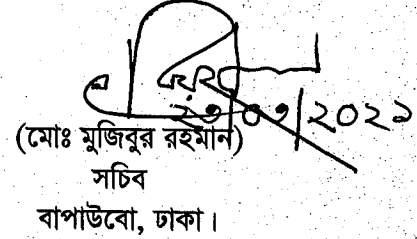 ২৩/০৩/২০২১
(মোঃ মুজিবুর রহমান)
সচিব
বাপাউবো, ঢাকা।